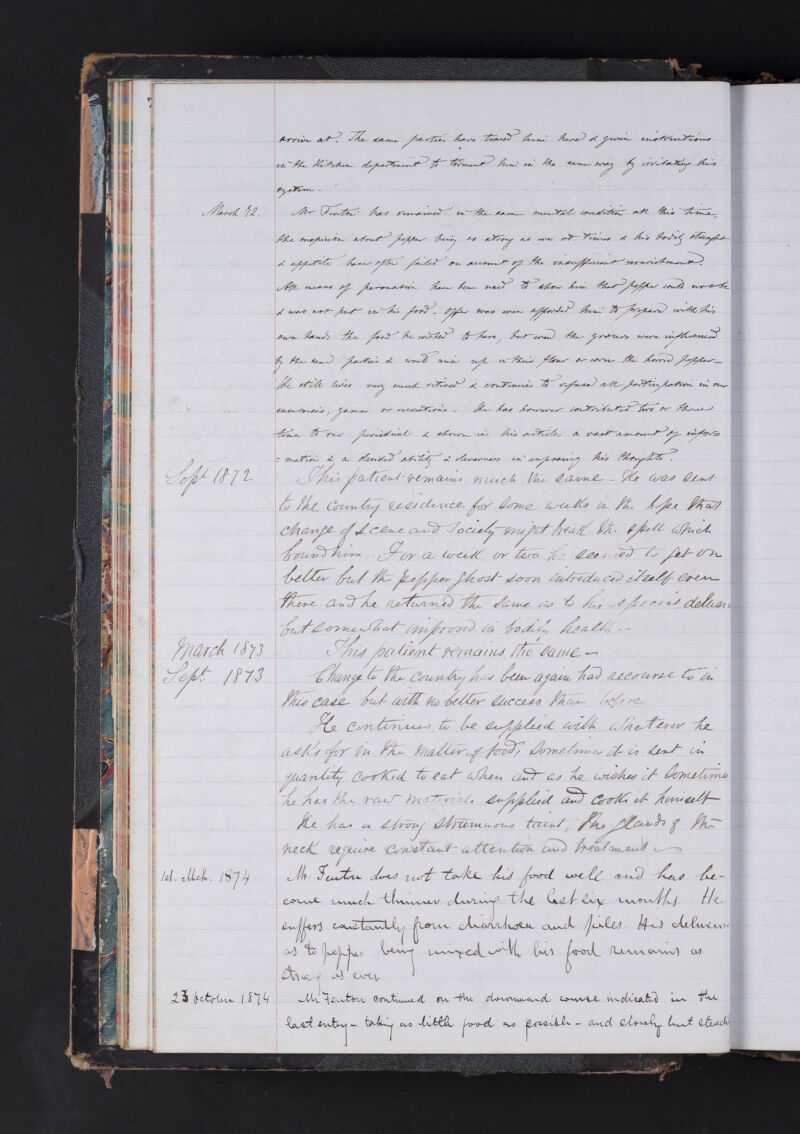 arrive at. The same parties have traced him here & given instructions
in the Kitchen department to torment him in the same way by irritating his
system.
March 72. Mr Fenton has remained in the same mental condition all this time,
the suspicion about pepper being as strong as ever at times & his bodily strength
& appetite have often failed on account of the insufficient nourishment.
All means of persuasion have been used to show him that pepper could not be
& was not put in his food. Offer was even afforded him to prepare with his
own hands the food he wished to have, but even the grocers were influenced
by the said parties & would mix up in their flour or corn the horrid pepper -
He still lives very much retired & continues to refuse all participation in our
amusements, games or recreations - He has however contributed two or three
times to our periodical & shown in his articles a vast amount of infor=
=mation & a decided ability & cleverness in expressing his thoughts.
Sept 1872 This patient remains much the same - He was sent
to the country residence for some weeks in the hope that
change of scene and Society might break the spell which
bound him. For a week or two he seemed to get on
better but the pepper ghost soon introduced itself even
there and he returned the same as to his special delusn
but somewhat improved in bodily health -
March 1873 This patient remains the same -
Sept. 1873 Change to the country has been again had recourse to in
this case but with no better success than before
He continues to be supplied with whatever he
asks for in the matter of food, Sometimes it is sent in
quantity cooked to eat when and as he wishes it Sometimes
he has the raw materials supplied and cooks it himself
He has a strong strumous taint, The glands of the
neck require constant attention and treatment -
1st. Mch. 1874 Mr Fenton does not take his food well and has be-
come much thinner during the last six months. He
suffers constantly from diarrhoea and piles. His delusion
as to pepper being mixed with his food remains as
strong as ever
23 October 1874 Mr Fenton continued on the downward course indicated in the
last entry - taking as little food as possible - and slowly but steadi